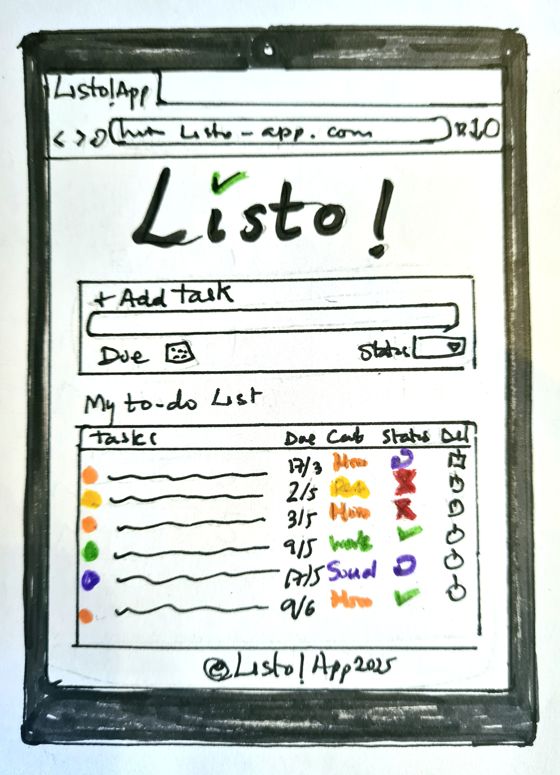 Listo!App
< > listo-app.com
Listo!
+ Add task
Due Status
My to-do List
Tasks Due Cat Status Del
17/3 Home
2/5
3/5 Home
9/5 work
17/5 Social
9/6 Home
©Listo!App2025